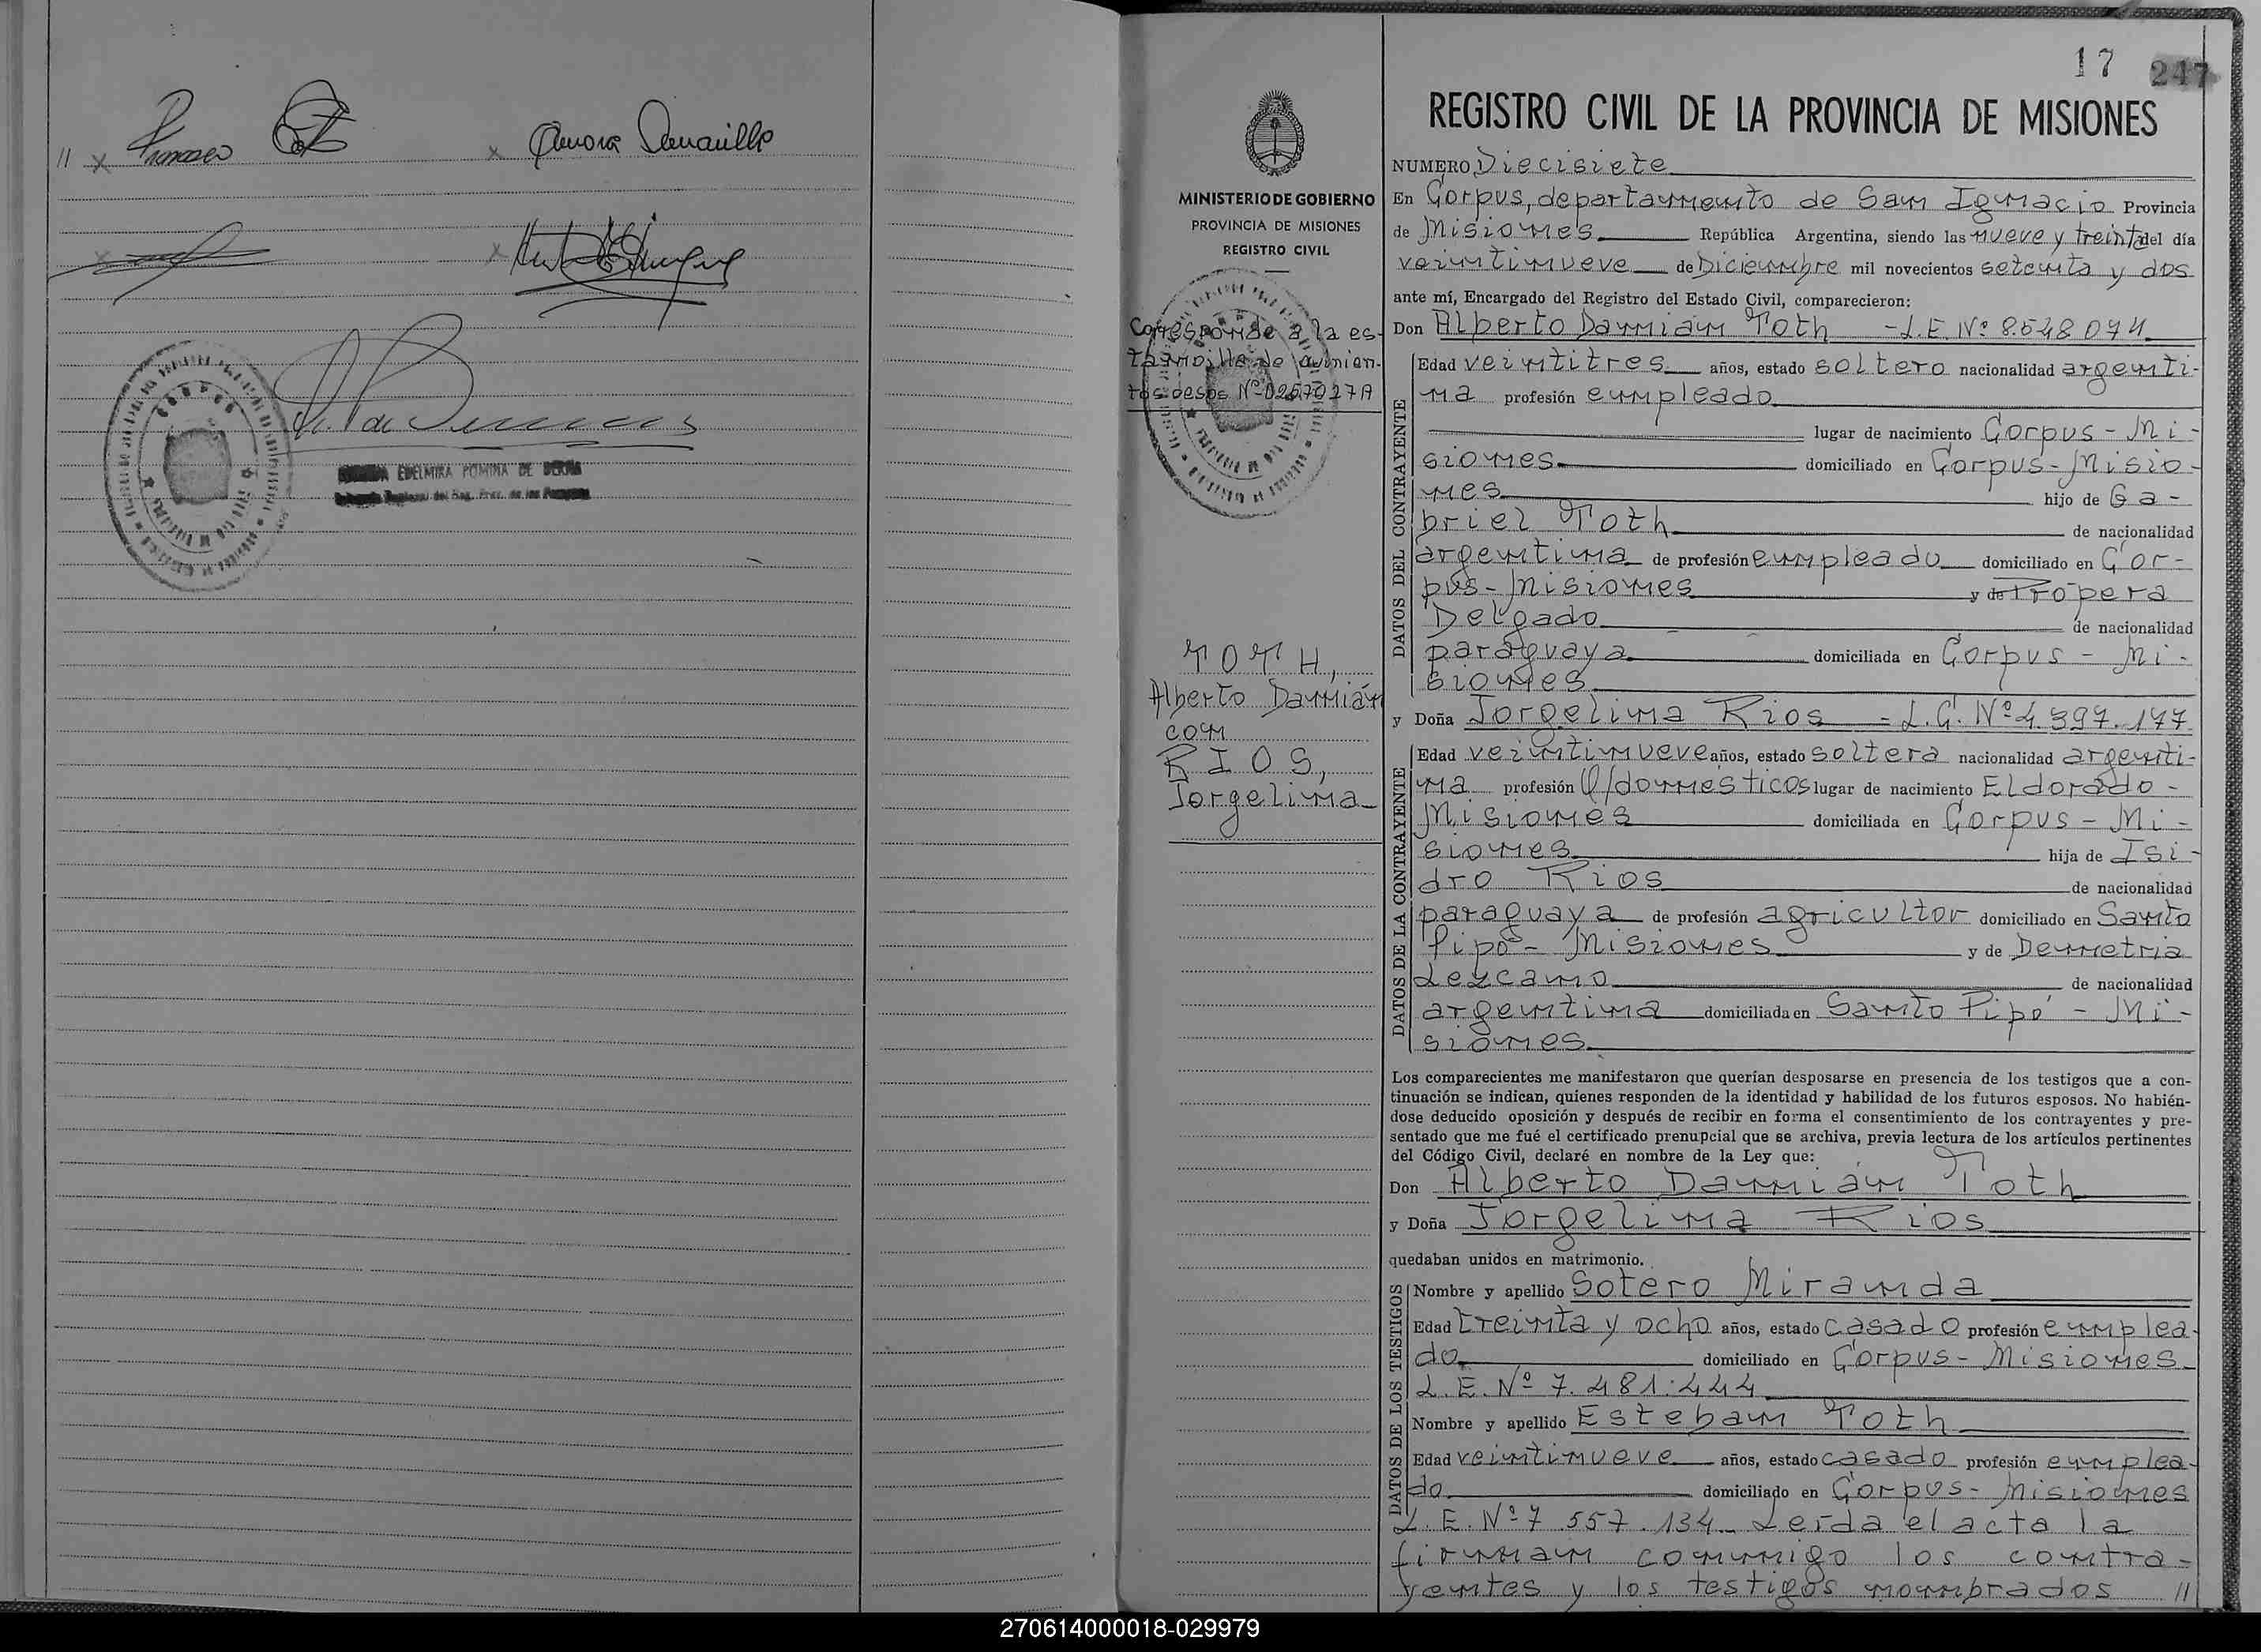 //
EDELMIRA ROMINA DE
17 247
REGISTRO CIVIL DE LA PROVINCIA DE MISIONES
MINISTERIO DE GOBIERNO
PROVINCIA DE MISIONES
REGISTRO CIVIL
Corresponde a la es-
tampilla de quinien-
tos pesos Nº 0267027A
TOTH,
Alberto Damián
con
RIOS,
Jorgelina
NUMERO Diecisiete
En Corpus, departamento de San Ignacio Provincia
de Misiones República Argentina, siendo las nueve y treinta del día
veintinueve de Diciembre mil novecientos setenta y dos
ante mí, Encargado del Registro del Estado Civil, comparecieron:
Don Alberto Damián Toth - L.E. Nº 8.548.074
DATOS DEL CONTRAYENTE
Edad veintitres años, estado soltero nacionalidad argenti-
na profesión empleado
lugar de nacimiento Corpus - Mi-
siones domiciliado en Corpus - Misio-
nes hijo de Ga-
briel Toth de nacionalidad
argentina de profesión empleado domiciliado en Cor-
pus - Misiones y de Própera
Delgado de nacionalidad
paraguaya domiciliada en Corpus - Mi-
siones
y Doña Jorgelina Rios - L.C. Nº 4.397.177
DATOS DE LA CONTRAYENTE
Edad veintinueve años, estado soltera nacionalidad argenti-
na profesión Q/domésticos lugar de nacimiento Eldorado -
Misiones domiciliada en Corpus - Mi-
siones hija de Isi-
dro Rios de nacionalidad
paraguaya de profesión agricultor domiciliado en Santo
Pipó - Misiones y de Demetria
Lezcano de nacionalidad
argentina domiciliada en Santo Pipó - Mi-
siones
Los comparecientes me manifestaron que querían desposarse en presencia de los testigos que a con-
tinuación se indican, quienes responden de la identidad y habilidad de los futuros esposos. No habién-
dose deducido oposición y después de recibir en forma el consentimiento de los contrayentes y pre-
sentado que me fué el certificado prenupcial que se archiva, previa lectura de los artículos pertinentes
del Código Civil, declaré en nombre de la Ley que:
Don Alberto Damián Toth
y Doña Jorgelina Rios
quedaban unidos en matrimonio.
DATOS DE LOS TESTIGOS
Nombre y apellido Sotero Miranda
Edad treinta y ocho años, estado casado profesión emplea-
do domiciliado en Corpus - Misiones
L.E. Nº 7.481.444
Nombre y apellido Esteban Toth
Edad veintinueve años, estado casado profesión emplea-
do domiciliado en Corpus - Misiones
L.E. Nº 7.557.134 - Leída el acta la
firman conmigo los contra-
yentes y los testigos nombrados //
270614000018-029979